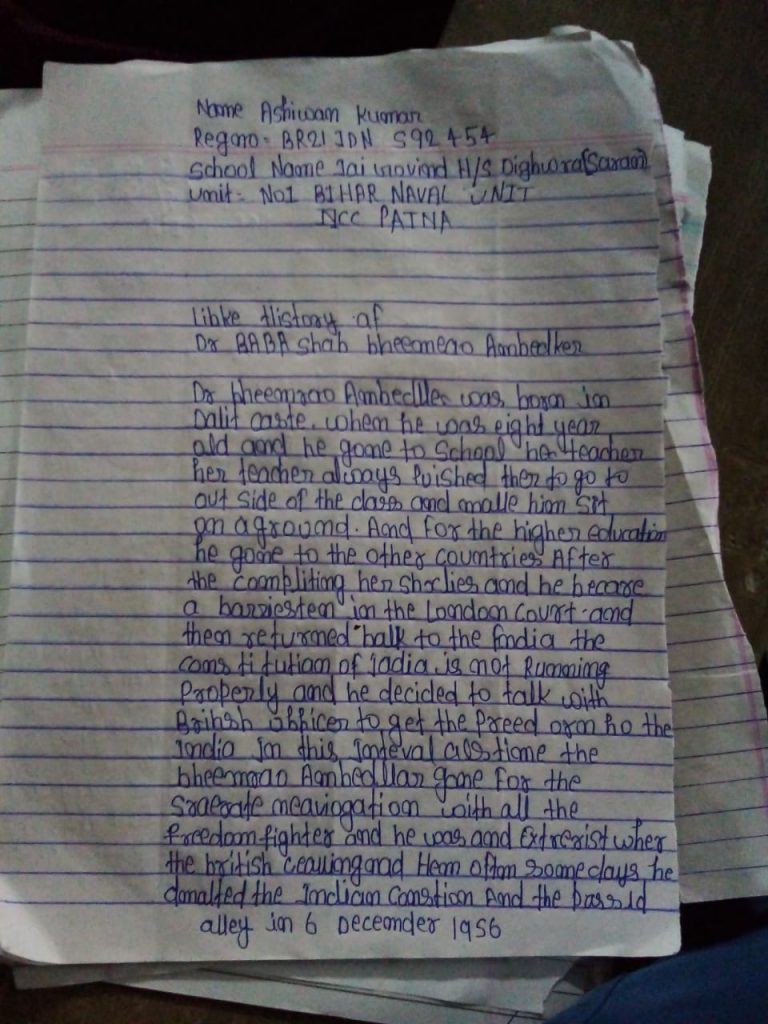 Name Ashiwam Kumar
Regmo- BR21 JDN S92454
School Name Jai Govind H/S Dighwara(Saran)
Unit- No1 BIHAR NAVAL UNIT
NCC PATNA
History of
Dr BABA Shah bheemerao Aambedker
Dr bheemrao was born in
Dalit caste. when he was eight year
old and he gone to School her teacher
her teacher always to go to
out side of the class and him sit
on a ground. And for the higher education
he gone to the other countries After
the compliting her and he became
a in the London Court and
then returned to the India the
constitution of India is not Running
Properly and he decided to talk with
British officer to get the the
India In this the
bheemrao gone for the
with all the
freedom fighter and he was and wher
the british some days he
the Indian And the
alley in 6 December 1956